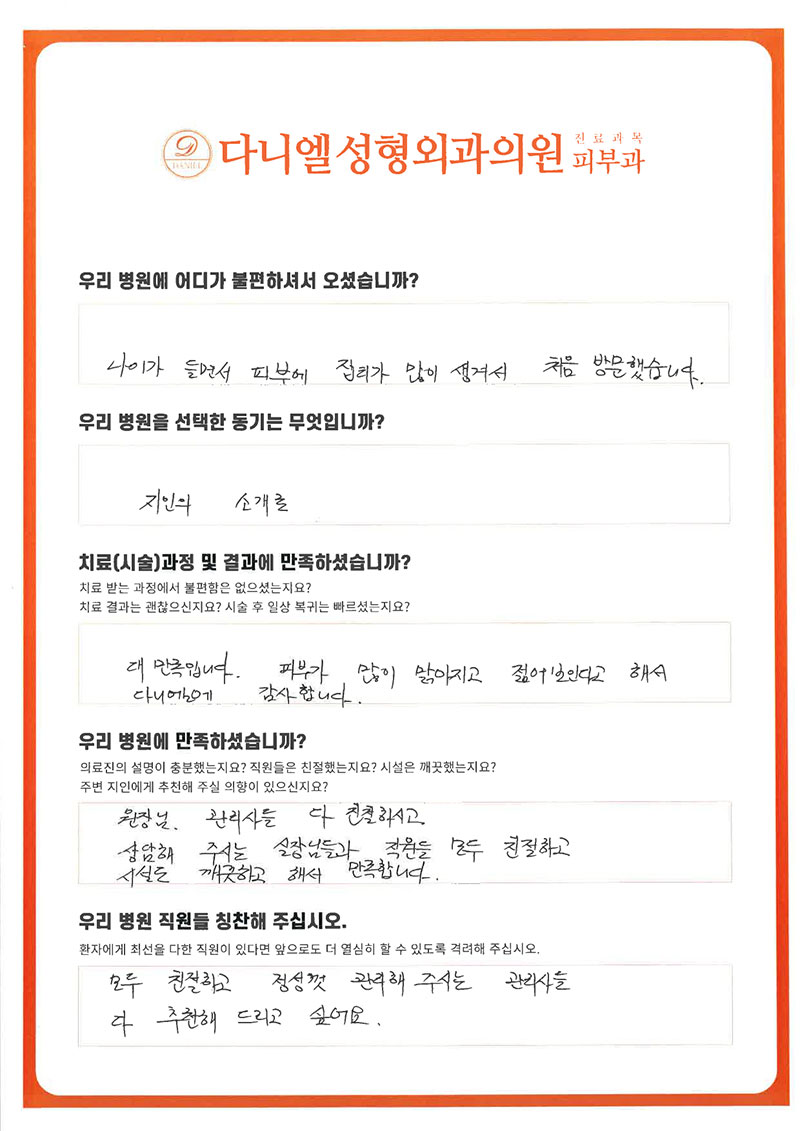 D
DANIEL
다니엘성형외과의원 진료과목 피부과
우리 병원에 어디가 불편하셔서 오셨습니까?
나이가 들면서 피부에 잡티가 많이 생겨서 처음 방문했습니다.
우리 병원을 선택한 동기는 무엇입니까?
지인의 소개로
치료(시술)과정 및 결과에 만족하셨습니까?
치료 받는 과정에서 불편함은 없으셨는지요?
치료 결과는 괜찮으신지요? 시술 후 일상 복귀는 빠르셨는지요?
대 만족입니다. 피부가 많이 맑아지고 젊어보인다고 해서
다니엘에 감사합니다.
우리 병원에 만족하셨습니까?
의료진의 설명이 충분했는지요? 직원들은 친절했는지요? 시설은 깨끗했는지요?
주변 지인에게 추천해 주실 의향이 있으신지요?
원장님. 관리사들 다 친절하시고
상담해 주시는 실장님들과 직원들 모두 친절하고
시설도 깨끗하고 해서 만족합니다.
우리 병원 직원들 칭찬해 주십시오.
환자에게 최선을 다한 직원이 있다면 앞으로도 더 열심히 할 수 있도록 격려해 주십시오.
모두 친절하고 정성껏 관리해 주시는 관리사들
다 추천해 드리고 싶어요.